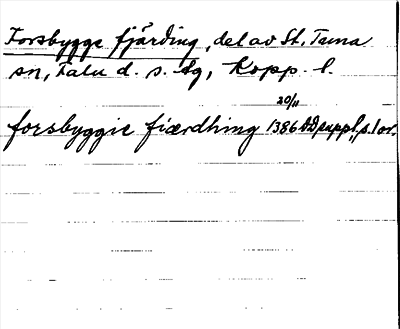 Forsbygge fjärding, del av St. Tuna
sn, Falu d. s. lg, Kopp. l.
20/11
forsbyggie fiærdhing 1386 DD suppl., s. l or.